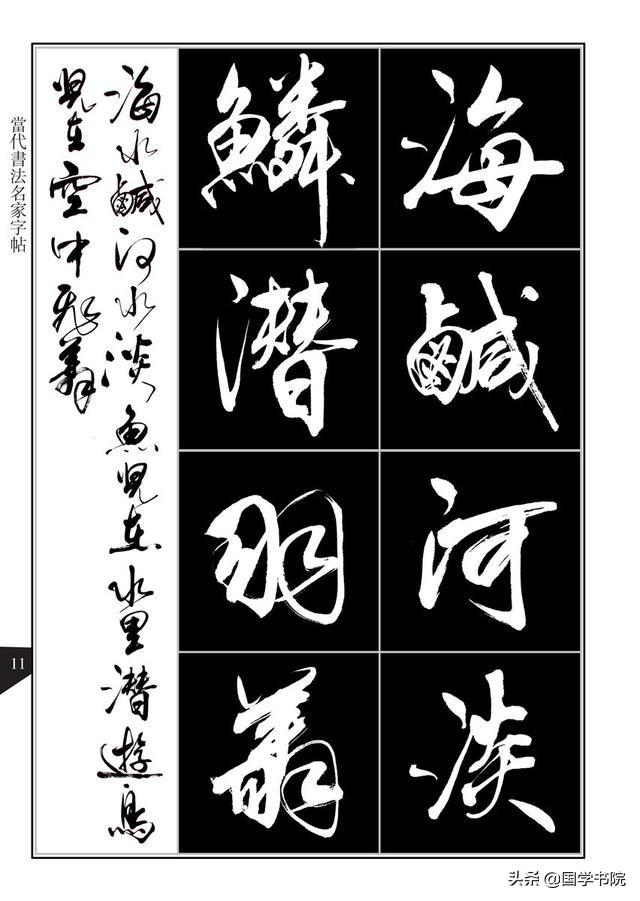 海鹹河淡
鱗潜羽翔
海水鹹河水淡魚兒在水里潜遊鳥
兒在空中飛翔
當代書法名家字帖
11
头条 @国学书院